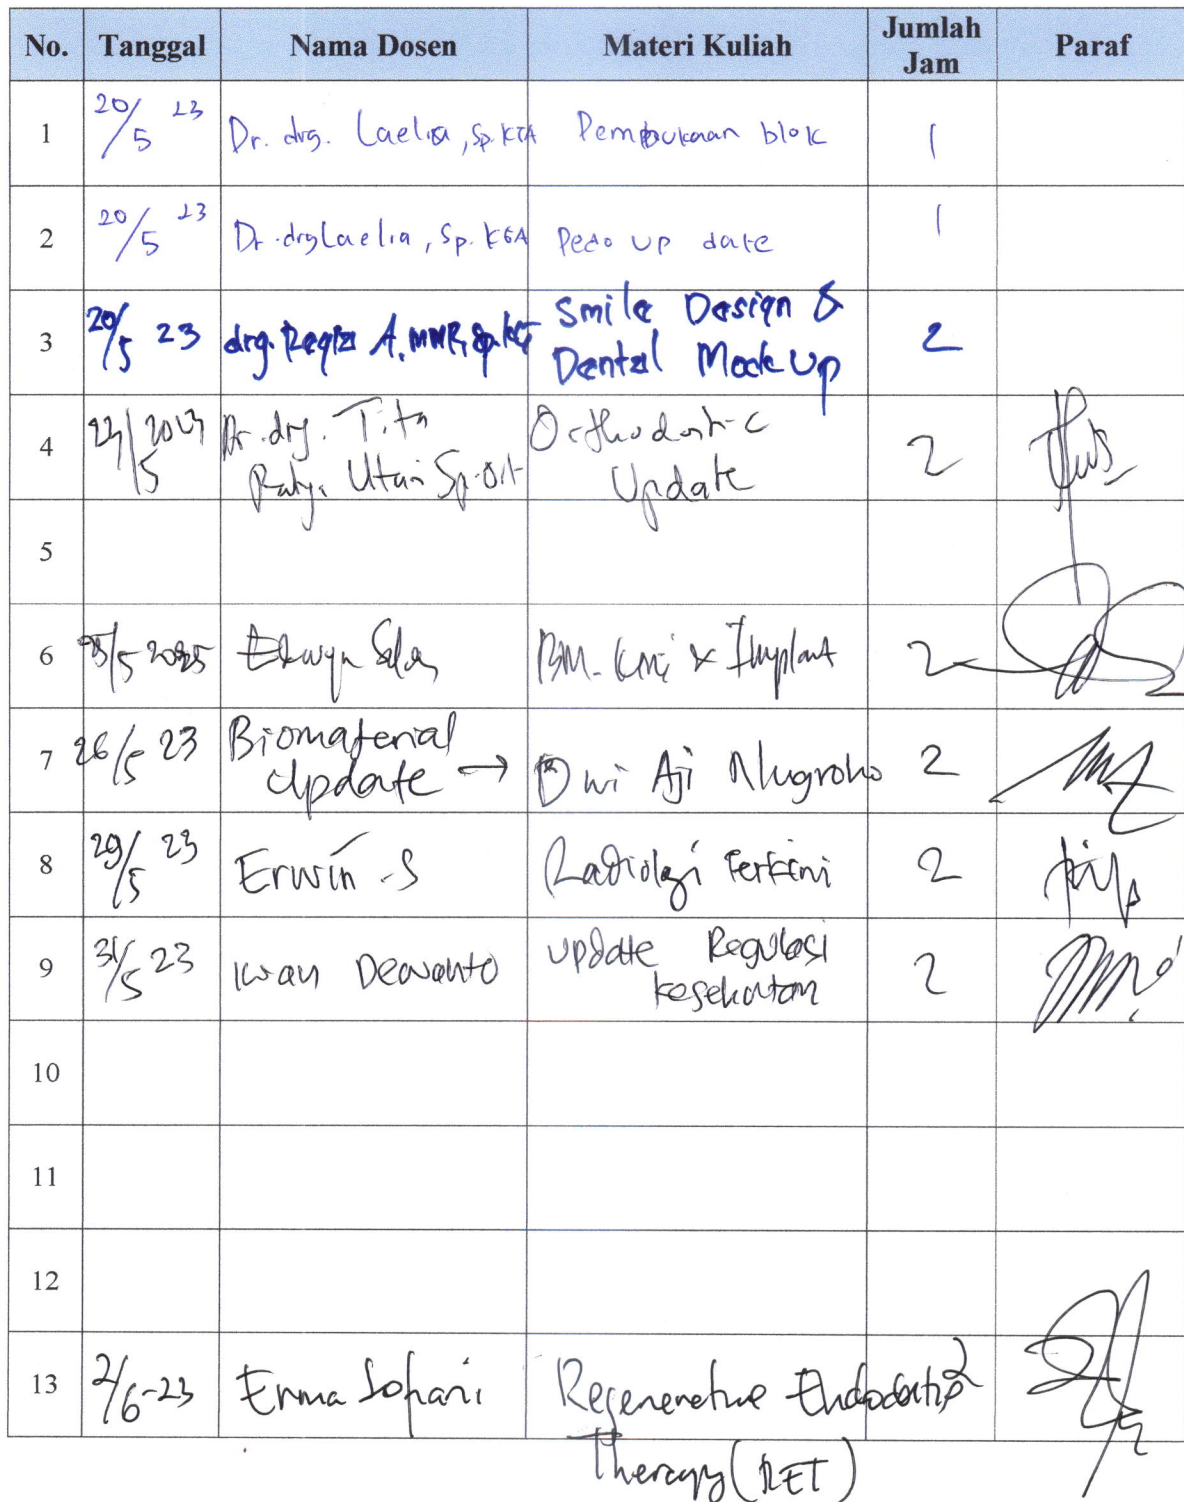 No. Tanggal Nama Dosen Materi Kuliah Jumlah Jam Paraf
1 20/5 23 Dr. drg. Laelia, Sp. KGA Pembukaan blok 1
2 20/5 23 Dr. drg Laelia, Sp. KGA Pedo up date 1
3 20/5 23 drg. A, MMR, Sp. Smile Design & 2
Dental Mock Up
4 Dr. drg. Tita Orthodontic 2
Utari Sp. Ort Update
5
6 BM. & Implant 2
7 26/5 23 Biomaterial
Update → Dwi Aji Nugroho 2
8 29/5 23 Erwin .S Radiologi terkini 2
9 31/5 23 Iwan Dewanto update Regulasi 2
kesehatan
10
11
12
13 2/6-23 Erma Sofiani Regenerative Endodontic 2
Therapy (RET)